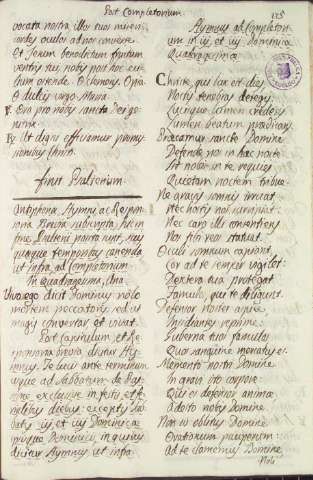 Post Completorium.
125
vocata nostra illos tuos miseri-
cordes oculos ad nos converte.
Et Iesum benedictum fructum
ventris tui, nobis post hoc exi-
lium ostende. O clemens. O pia.
O dulcis virgo Maria.
℣. Ora pro nobis sancta Dei ge-
nitrix.
℟. Ut digni efficiamur promis-
sionibus Christi.
finit Psalterium.
Antiphona, Hymni, ac Respon-
soria
fine Psalterii posita sunt, suis
quæque temporibus canenda
ut infra, ad Completorium.
In quadragesima, Ana.
Vivo ego dicit Dominus nolo
mortem peccatoris, sed ut
magis convertatur et vivat.
Post capitulum, et Re-
sponsoria brevia dicitur Hy-
mnus. Te lucis ante terminum
usque ad Sabbatum de Pas-
sione exclusive in festis, et fe-
rialibus diebus: exceptis Sab-
batis iij, et iiij, et Dominicis
ipsisque Dominicis, in quibus
dicitur Hymnus ut infra.
Hymnus ad Completori-
um in iij, et iiij Dominica
Quadragesimæ.
Christe, qui lux es et dies
Noctis tenebras detegis
Lucisque lumen crederis
Lumen beatum prædicans
Precamur sancte Domine
Defende nos in hac nocte
Sit nobis in te requies
Quietam noctem tribue.
Ne gravis somnus irruat
Nec hostis nos surripiat
Nec caro illi consentiens
Nos tibi reos statuat.
Oculi somnum capiant
Cor ad te semper vigilet:
Dextera tua protegat
Famulos, qui te diligunt.
Defensor noster aspice,
Insidiantes reprime:
Guberna tuos famulos
Quos sanguine mercatus es.
Memento nostri Domine
In gravi isto corpore
Qui es defensor animæ
Adesto nobis Domine.
Domine
ad te clamemus Domine